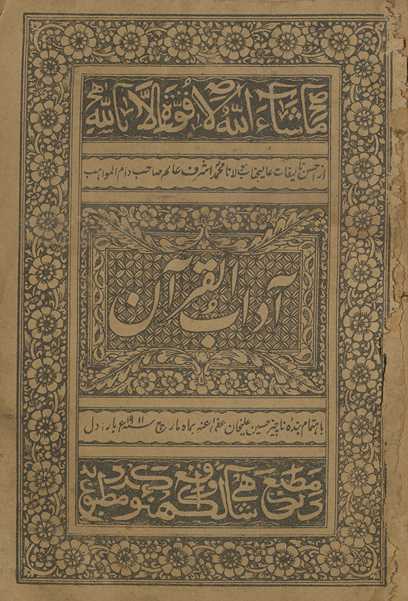 ماشاء الله لا قوة الا بالله
از احسن تالیفات عالیجناب مولانا محمد اشرف عالم صاحب دام المواهب
آداب القرآن
باہتمام بندہ ناچیز حسین علیخان عفی عنہ بماہ مارچ سنہ ۱۹۱۱ء بار اول
مطبع شاہی لکھنؤ مطبوع